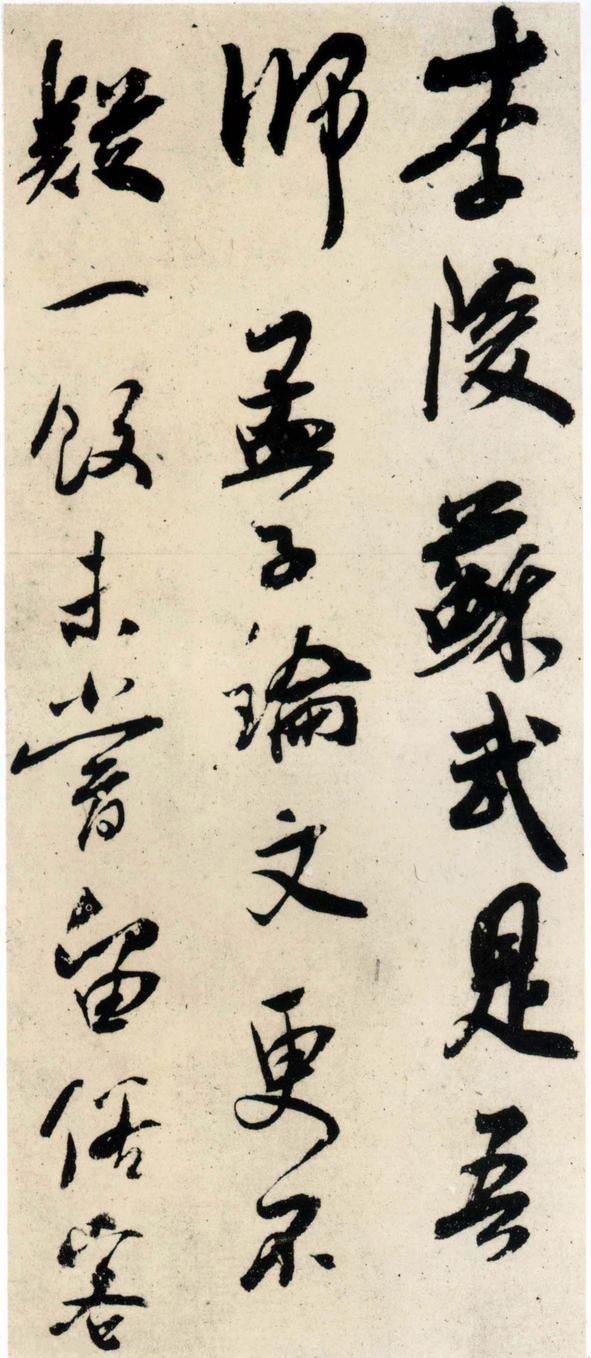 李陵蘇武是吾
師孟子論文更不
疑一飯未嘗留俗客